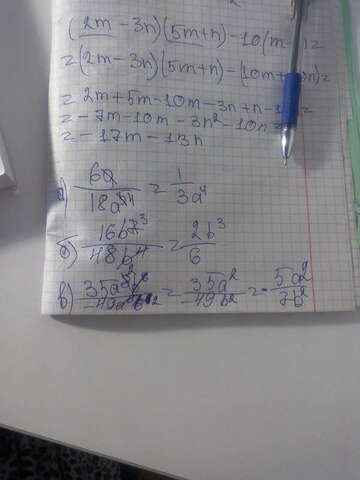 (2m - 3n)(5m+n) - 10(m - ) =
= (2m - 3n)(5m+n) - (10m + n) =
= 2m + 5m - 10m - 3n + n - 1 =
= - 7m - 10m - 3n² - 10n =
= - 17m - 13n
а) 6a / 18a = 1 / 3a⁴
б) 16b³ / 48b⁴ = 2b³ / 6
в) 35a / -49 = 35a² / -49b² = - 5a² / 7b²